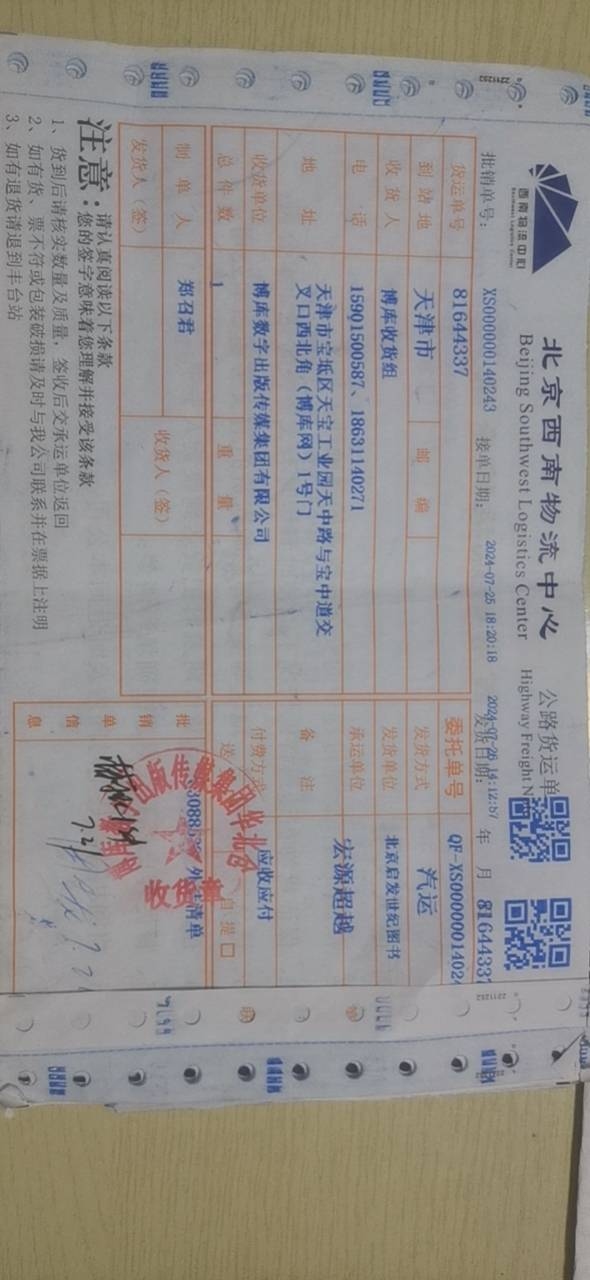 西南物流中心
Southwest Logistics Center
北京西南物流中心
Beijing Southwest Logistics Center
公路货运单
Highway Freight N
批销单号：XS000000140243
接单日期：2024-07-25 18:20:18
发货日期：2024-07-26 14:12:57 年 月
81644337
货运单号 81644337
委托单号 QF-XS00000014024
到站地 天津市 邮编
发货方式 汽运
收货人 博库收货组
发货单位 北京启发世纪图书
电话 15901500587、18631140271
承运单位 宏源超越
地址 天津市宝坻区天宝工业园天中路与宝中道交
叉口西北角（博库网）1号门
备注
收货单位 博库数字出版传媒集团有限公司
付费方式 应收应付
总件数 1 重量
送 自提□
制单人 郑召君 收货人（签）
发货人（签）
批销单信息
清单
出版传媒集团华北
收货章
注意：
请认真阅读以下条款
您的签字意味着您理解并接受该条款
1、货到后请核实数量及质量，签收后交承运单位返回
2、如有货、票不符或包装破损请及时与我公司联系并在票据上注明
3、如有退货请退到丰台站